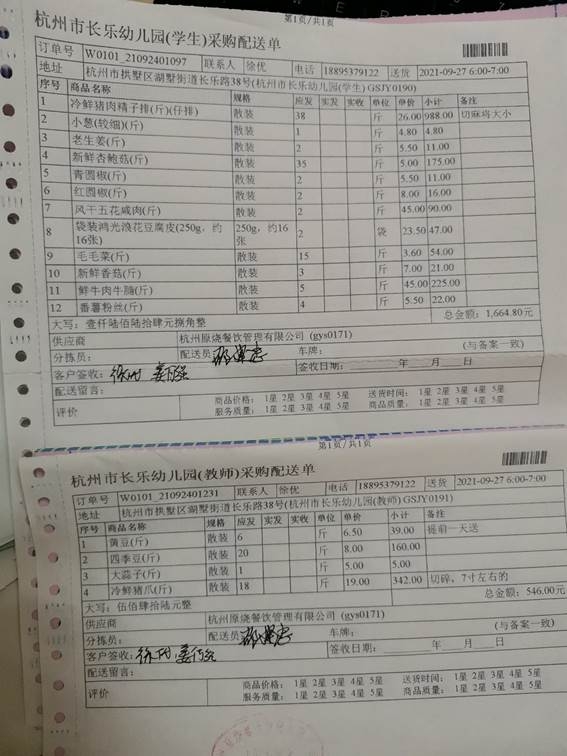 第1页/共1页
杭州市长乐幼儿园(学生)采购配送单
订单号 W0101_21092401097 联系人 徐优 电话 18895379122 送货 2021-09-27 6:00-7:00
地址 杭州市拱墅区湖墅街道长乐路38号(杭州市长乐幼儿园(学生) GSJY0190)
序号 商品名称 规格 应发 实发 实收 单位 单价 小计 备注
1 冷鲜猪肉精子排(斤)(仔排) 散装 38 斤 26.00 988.00 切麻将大小
2 小葱(较细)(斤) 散装 1 斤 4.80 4.80
3 老生姜(斤) 散装 2 斤 5.50 11.00
4 新鲜杏鲍菇(斤) 散装 35 斤 5.00 175.00
5 青圆椒(斤) 散装 2 斤 5.50 11.00
6 红圆椒(斤) 散装 2 斤 8.00 16.00
7 风干五花咸肉(斤) 散装 2 斤 45.00 90.00
8 袋装鸿光浪花豆腐皮(250g，约16张) 250g，约16张 2 袋 23.50 47.00
9 毛毛菜(斤) 散装 15 斤 3.60 54.00
10 新鲜香菇(斤) 散装 3 斤 7.00 21.00
11 鲜牛肉牛腩(斤) 散装 5 斤 45.00 225.00
12 番薯粉丝(斤) 散装 4 斤 5.50 22.00
大写：壹仟陆佰陆拾肆元捌角整 总金额：1,664.80元
供应商 杭州原烧餐饮管理有限公司 (gys0171)
分拣员： 配送员 车牌： (与备案一致)
客户签收： 签收日期： 年 月 日
配送留言：
评价 商品价格： 1星 2星 3星 4星 5星 送货时间： 1星 2星 3星 4星 5星
服务质量： 1星 2星 3星 4星 5星 商品质量： 1星 2星 3星 4星 5星
第1页/共1页
杭州市长乐幼儿园(教师)采购配送单
订单号 W0101_21092401231 联系人 徐优 电话 18895379122 送货 2021-09-27 6:00-7:00
地址 杭州市拱墅区湖墅街道长乐路38号(杭州市长乐幼儿园(教师) GSJY0191)
序号 商品名称 规格 应发 实发 实收 单位 单价 小计 备注
1 黄豆(斤) 散装 6 斤 6.50 39.00 提前一天送
2 四季豆(斤) 散装 20 斤 8.00 160.00
3 大蒜子(斤) 散装 1 斤 5.00 5.00
4 冷鲜猪爪(斤) 散装 18 斤 19.00 342.00 切碎，7寸左右的
大写：伍佰肆拾陆元整 总金额：546.00元
供应商 杭州原烧餐饮管理有限公司 (gys0171)
分拣员： 配送员 车牌： (与备案一致)
客户签收： 签收日期： 年 月 日
配送留言：
评价 商品价格： 1星 2星 3星 4星 5星 送货时间： 1星 2星 3星 4星 5星
服务质量： 1星 2星 3星 4星 5星 商品质量： 1星 2星 3星 4星 5星